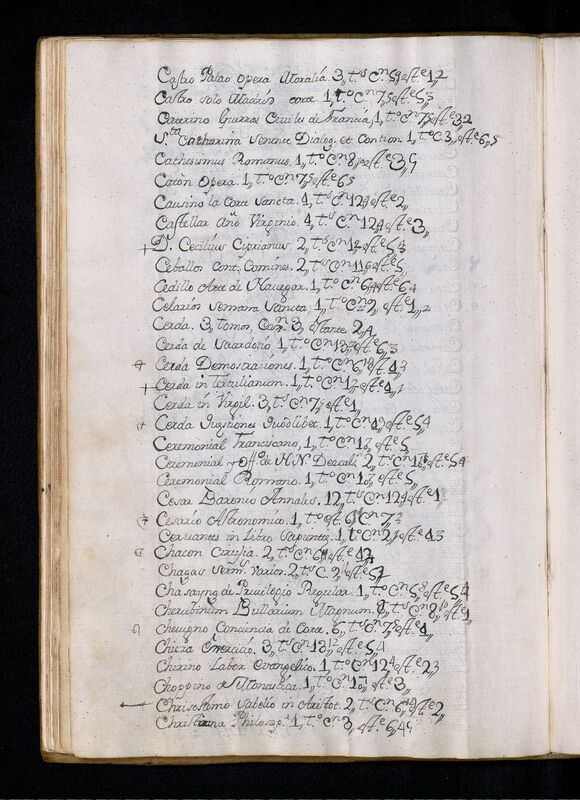 Castro Palao Opera Moralia. 3,, t.s C.n 5, est.e 1,,2
Castro solo Madrid corte. 1,, t.o C.n 7,, est.e 5,,3
Caterino Guerras Civiles de Francia, 1,, t.o C.n 7, est.e 3,,2
S.ta Catharina Senense Dialog. et Contion. 1,, t.o C.n 3,, est.e 6,,5
Cathesismus Romanus. 1,, t.o C.n 8,, est.e 3,,
Caton Opera. 1,, t.o C.n 7, est.e 6 5
Causino la Corte Santa. 4,, t.s C.n 12 est.e 2,,
Castellar año Virginio. 4,, t.s C.n 12 est.e 3,,
D. Cecilius Ciprianus. 2,, t.s C.n 12 est.e 5
Ceballos cont. Comines. 2,, t.s C.n 11 est.e 5,,
Cedillo Arte de Navegar. 1,, t.o C.n 6 est.e 6 4
Celarios Semana Sancta. 1,, t.o C.n 2,, est.e 1,,2
Cerda. 3,, tomos, Can. 3,, estante 2,,4
Cerda de Sacerdotio. 1,, t.o C.n 13 est.e 6,,3
Cerda Demostraciones. 1,, t.o C.n 6 est.e 4
Cerda in Tertulianum. 1,, t.o C.n 1 est.e 4,,
Cerda in Virgil. 3,, t.s C.n 7,, est.e 1,,
Cerda Questiones Quodlibet. 1,, t.o C.n 4 est.e 5 4
Ceremonial Franciscano, 1,, t.o C.n 1 est.e 5,,
Ceremonial y Off.o de N.N. Descals. 2,, t.s C.n 1 est.e 5 4
Ceremonial Romano. 1,, t.o C.n 1 est.e 5,,
Cesar Baronio Annales. 12,, t.s C.n 12 est.e 1,,
Cesario Astronomico. 1,, t.o est. 6 C.n 7
Cervantes in Libro Sapientę. 1,, t.o C.n 2 est.e 4 3
Chacon Cirujia. 2,, t.s C.n 6 est.e 4
Chagas Serm.s Varios. 2,, t.s C. 2 est.e 5
Chasayng de Privilegio Regular. 1,, t.o C.n 5 est.e 5 4
Cherubinum Bullarium Magnum. 8,, t.s C.n 8 est.e 1
Chevigno Conciencia de Corte. 6,, t.s C.n 7 est.e 4,,
Chiesa Exercicio. 3,, t.s C.n 13 est.e 5,,4
Chirino Labor Evangelico. 1,, t.o C.n 12 est.e 2 3
Choppino de Monastica. 1,, t.o C.n 1 est.e 3,,
Chrisostomo Sabelio in Aristot. 2,, t.s C.n 6 est.e 2,,
Christiana Philosop.a 1,, t.o C.n 3,, est.e 6,,4